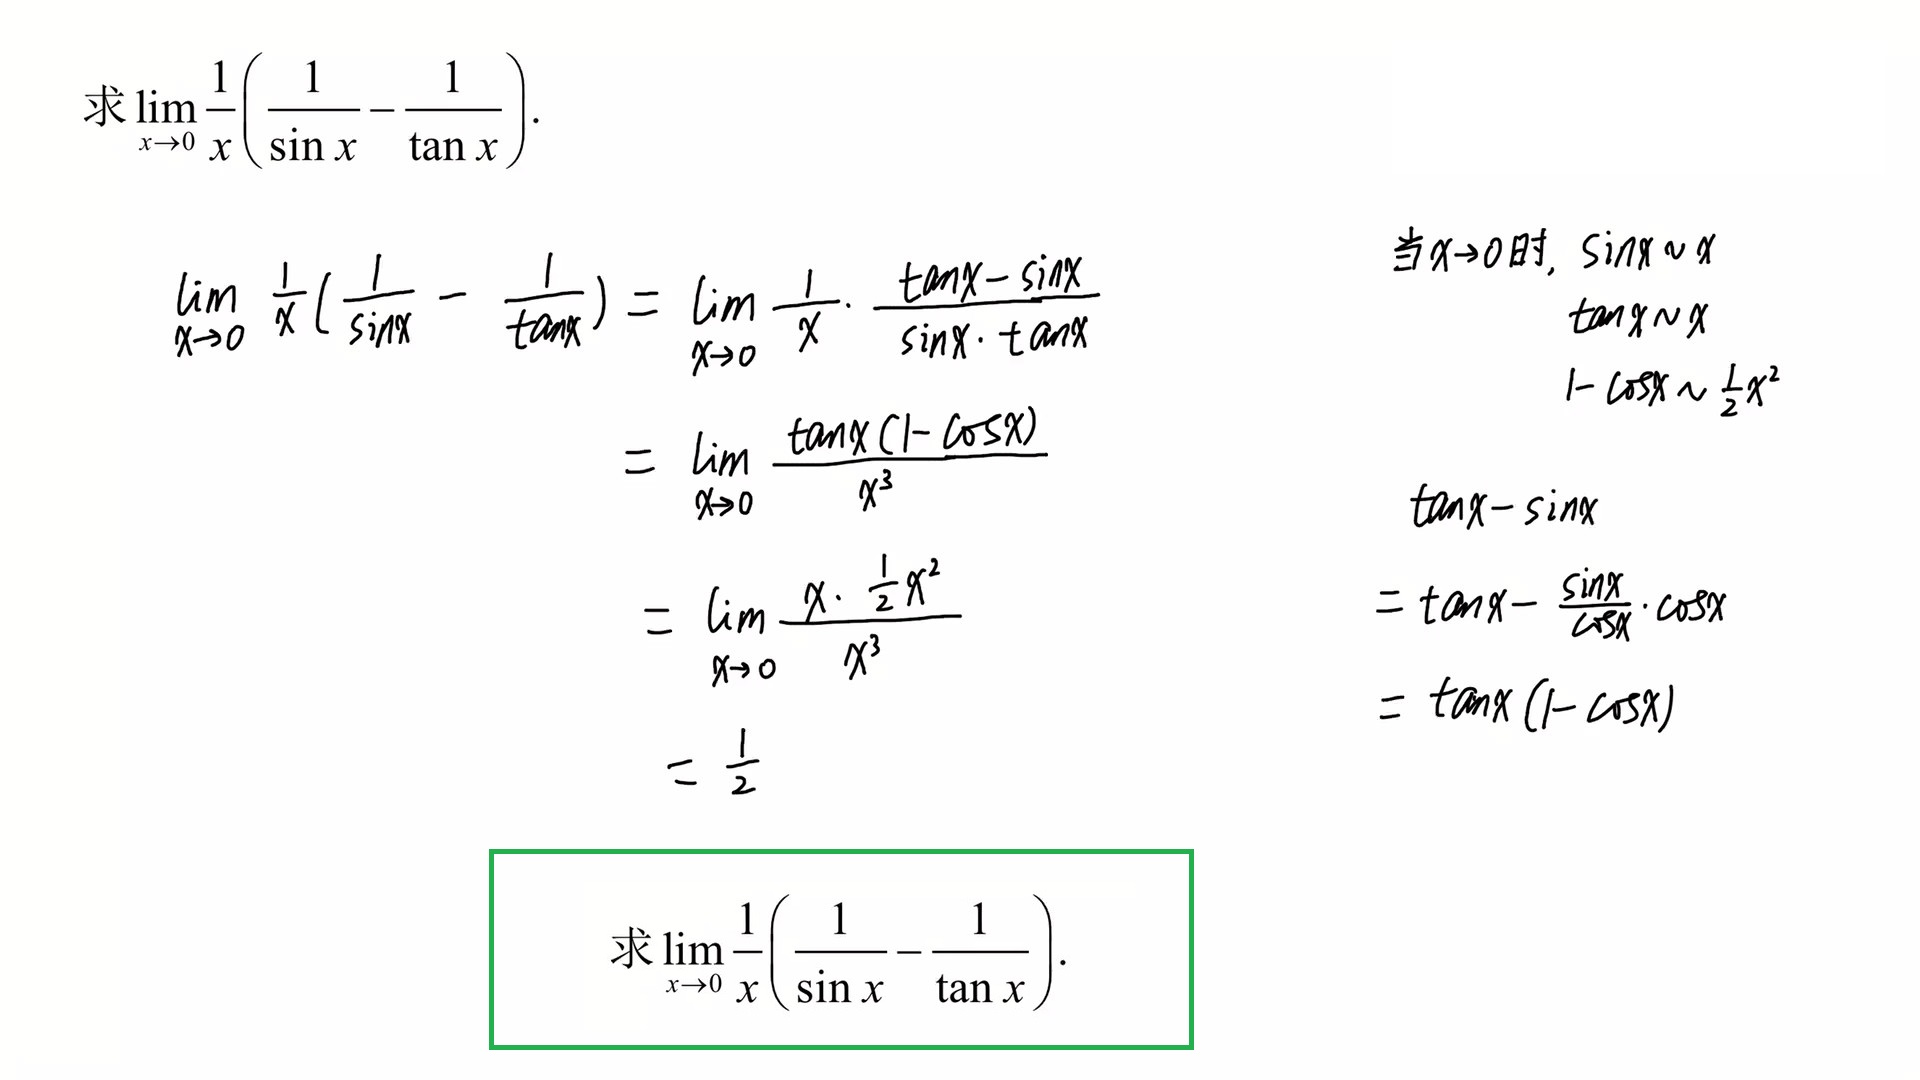 求 lim_{x→0} 1/x (1/sin x − 1/tan x).
lim_{x→0} 1/x (1/sinx − 1/tanx) = lim_{x→0} 1/x · (tanx − sinx)/(sinx · tanx)
= lim_{x→0} tanx(1 − cosx)/x³
= lim_{x→0} (x · 1/2 x²)/x³
= 1/2
当x→0时, sinx ~ x
tanx ~ x
1 − cosx ~ 1/2 x²
tanx − sinx
= tanx − sinx/cosx · cosx
= tanx (1 − cosx)
求 lim_{x→0} 1/x (1/sin x − 1/tan x).